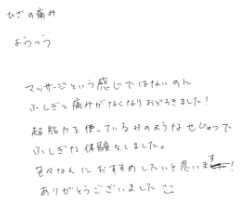 ひざの痛み
ようつう
マッサージという感じではないのに
ふしぎと痛みがなくなりおどろきました!
超能力を使っているみのようなせじゅつで
ふしぎな体験をしました。
色々な人におすすめしたいと思います!
ありがとうございました